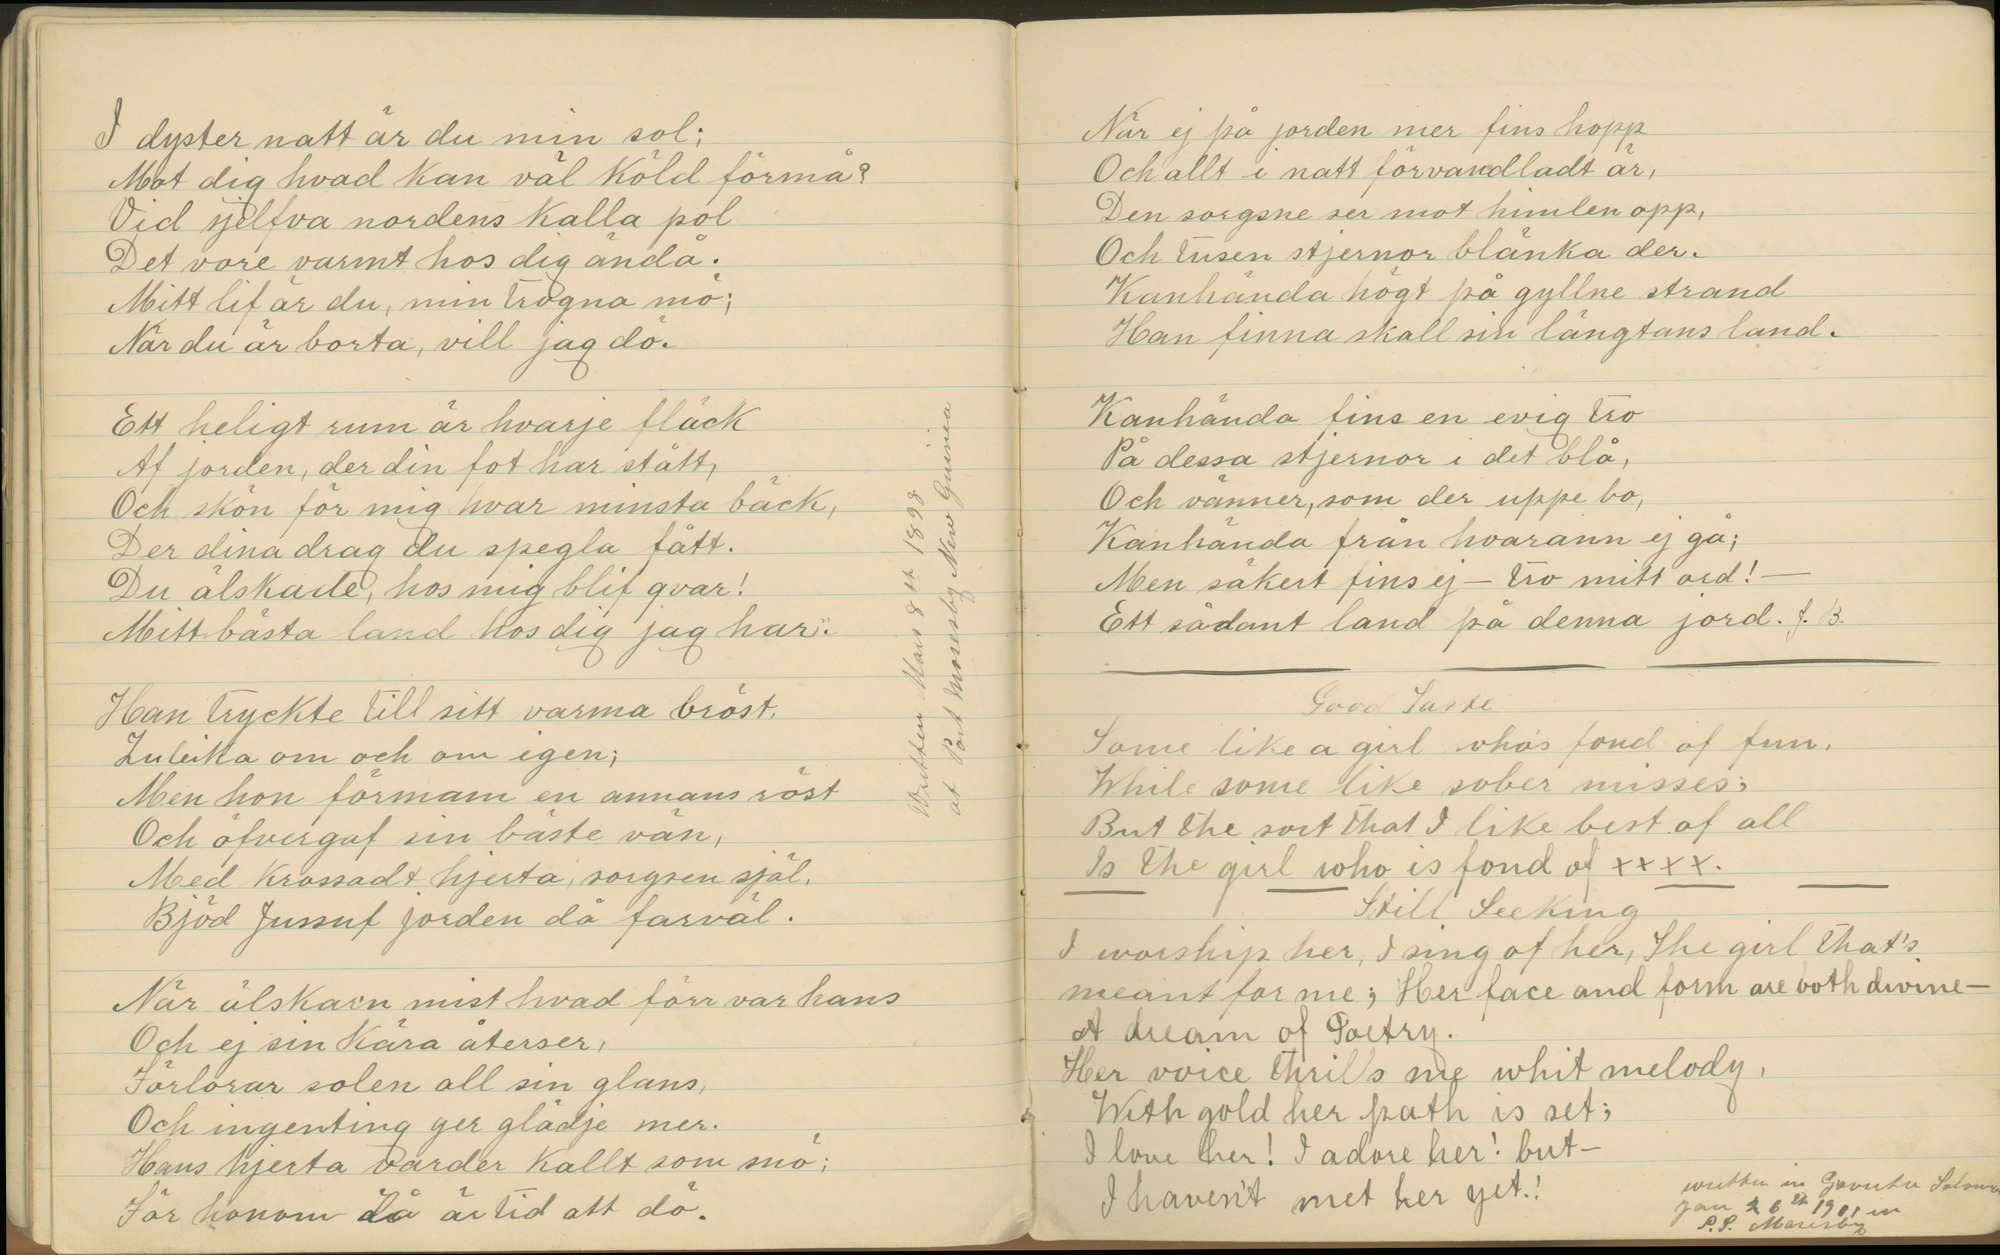 I dyster natt är du min sol;
Mot dig hvad kan väl köld förmå?
Vid sjelfva nordens kalla pol
Det vore varmt hos dig ändå.
Mitt lif är du, min trogna mö;
När du är borta, vill jag dö.
Ett heligt rum är hvarje fläck
Af jorden, der din fot har stått,
Och skön för mig hvar minsta bäck,
Der dina drag du spegla fått.
Du älskade, hos mig blif qvar!
Mitt bästa land hos dig jag har.
Han tryckte till sitt varma bröst.
Zuleika om och om igen;
Men hon förmam en annans röst
Och öfvergaf sin bäste vän,
Med krossadt hjerta, sorgsen själ.
Bjöd Jussuf jorden då farväl.
När älskarn mist hvad förr var hans
Och ej sin kära återser,
Förlorar solen all sin glans,
Och ingenting ger glädje mer.
Hans hjerta varder kallt som snö;
För honom då är tid att dö.
Written Mars 8th 1898
at Port Moresby New Guinea
När ej på jorden mer fins hopp
Och allt i natt förvandladt är,
Den sorgsne ser mot himlen opp,
Och tusen stjernor blänka der.
Kanhända högt på gyllne strand
Han finna skall sin längtans land.
Kanhända fins en evig tro
På dessa stjernor i det blå,
Och vänner, som der uppe bo,
Kanhända från hvarann ej gå;
Men säkert fins ej – tro mitt ord! –
Ett sådant land på denna jord. J. B.
Good Taste
Some like a girl who's fond of fun.
While some like sober misses;
But the sort that I like best of all
Is the girl who is fond of xxxx.
Still Seeking
I worship her, I sing of her, The girl that's
meant for me; Her face and form are both divine –
A dream of Poetry.
Her voice thrills me whit melody,
With gold her path is set;
I love her! I adore her! but –
I haven't met her yet.!
written in
Jan 26th 1901 in
P.P. Moresby